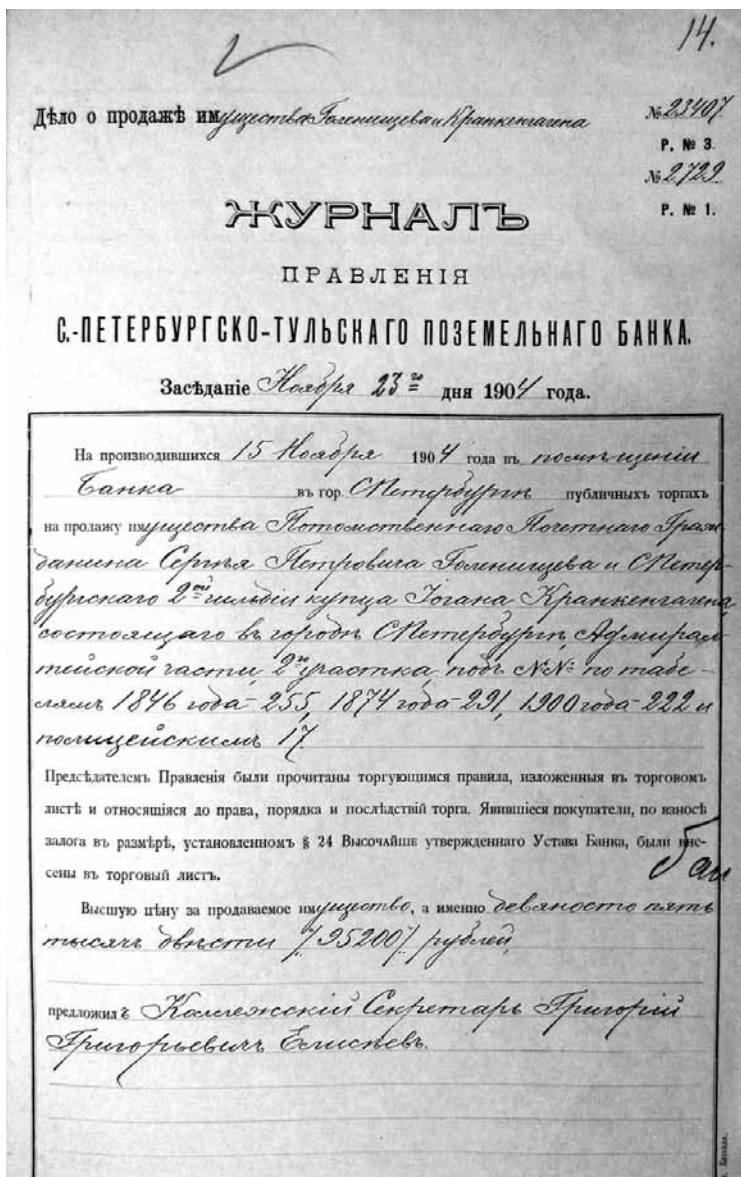 14.
Дѣло о продажѣ имущества Голенищева и Кранкенгагена
№ 23407
Р. № 3.
№ 2729
Р. № 1.
ЖУРНАЛЪ
ПРАВЛЕНІЯ
С.-ПЕТЕРБУРГСКО-ТУЛЬСКАГО ПОЗЕМЕЛЬНАГО БАНКА.
Засѣданіе Ноября 23го дня 1904 года.
На производившихся 15 Ноября 1904 года въ помѣщеніи
Банка въ гор. СПетербургѣ публичныхъ торгахъ
на продажу имущества Потомственнаго Почетнаго Граж-
данина Сергѣя Петровича Голенищева и СПетер-
бургскаго 2ой гильдіи купца Іогана Кранкенгагена,
состоящаго въ городѣ СПетербургѣ, Адмирал-
тейской части, 2го участка, подъ №№ по табе-
лямъ 1846 года - 255, 1874 года - 291, 1900 года - 222 и
полицейскимъ 17.
Предсѣдателемъ Правленія были прочитаны торгующимся правила, изложенныя въ торговомъ
листѣ и относящіяся до права, порядка и послѣдствій торга. Явившіеся покупатели, по взносѣ
залога въ размѣрѣ, установленномъ § 24 Высочайше утвержденнаго Устава Банка, были вне-
сены въ торговый листъ.
Высшую цѣну за продаваемое имущество, а именно девяносто пять
тысячъ двѣсти /95200/ рублей,
предложилъ Коллежскій Секретарь Григорій
Григорьевичъ Елисѣевъ.